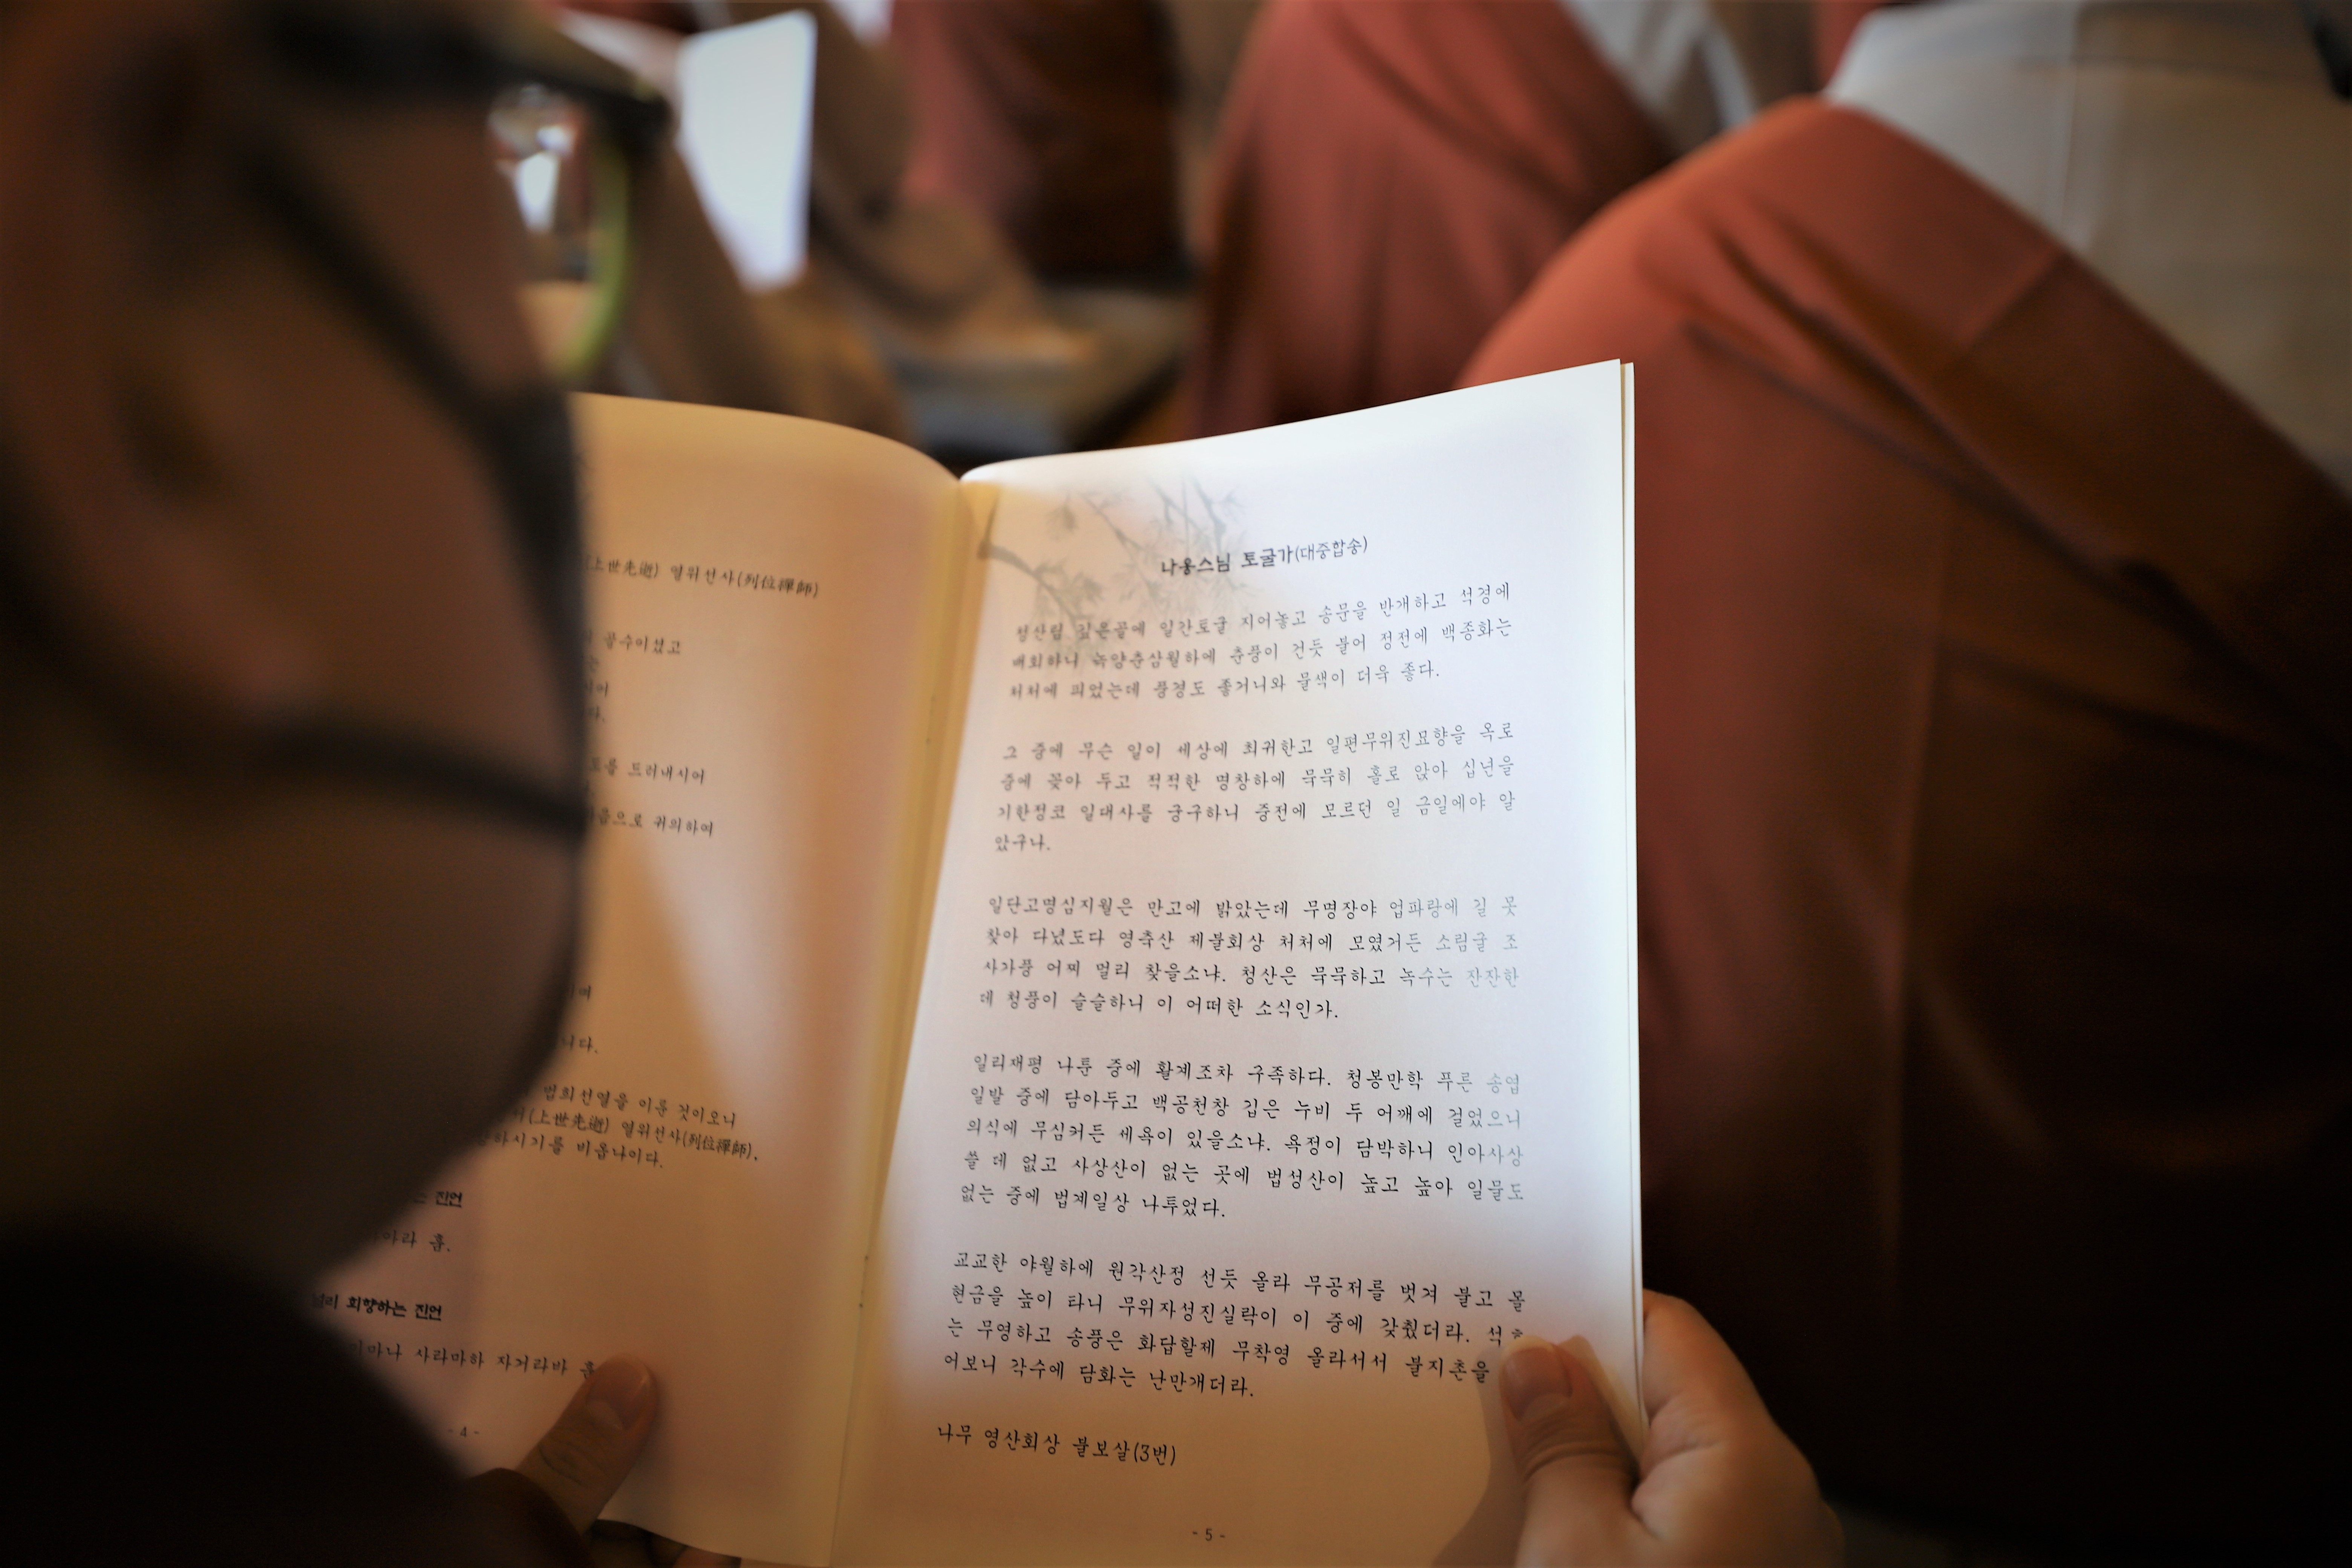 (上世先逝) 열위선사(列位禪師)
공수이셨고
드러내시어
귀의하여
니다.
법희선열을 이룬 것이오니
(上世先逝) 열위선사(列位禪師),
하시기를 비옵나이다.
진언
아라 훔.
회향하는 진언
사라마하 자거라바 훔
- 4 -
나옹스님 토굴가(대중합송)
청산림 깊은골에 일간토굴 지어놓고 송문을 반개하고 석경에
배회하니 녹양춘삼월하에 춘풍이 건듯 불어 정전에 백종화는
처처에 피었는데 풍경도 좋거니와 물색이 더욱 좋다.
그 중에 무슨 일이 세상에 최귀한고 일편무위진묘향을 옥로
중에 꽂아 두고 적적한 명창하에 묵묵히 홀로 앉아 십년을
기한정코 일대사를 궁구하니 증전에 모르던 일 금일에야 알
았구나.
일단고명심지월은 만고에 밝았는데 무명장야 업파랑에 길 못
찾아 다녔도다 영축산 제불회상 처처에 모였거든 소림굴 조
사가풍 어찌 멀리 찾을소냐. 청산은 묵묵하고 녹수는 잔잔한
데 청풍이 슬슬하니 이 어떠한 소식인가.
일리재평 나툰 중에 활계조차 구족하다. 청봉만학 푸른 송엽
일발 중에 담아두고 백공천창 깁은 누비 두 어깨에 걸었으니
의식에 무심커든 세욕이 있을소냐. 욕정이 담박하니 인아사상
쓸 데 없고 사상산이 없는 곳에 법성산이 높고 높아 일물도
없는 중에 법계일상 나투었다.
교교한 야월하에 원각산정 선듯 올라 무공저를 벗겨 불고 몰
현금을 높이 타니 무위자성진실락이 이 중에 갖췄더라. 석
는 무영하고 송풍은 화답할제 무착영 올라서서 불지촌을
어보니 각수에 담화는 난만개더라.
나무 영산회상 불보살(3번)
- 5 -